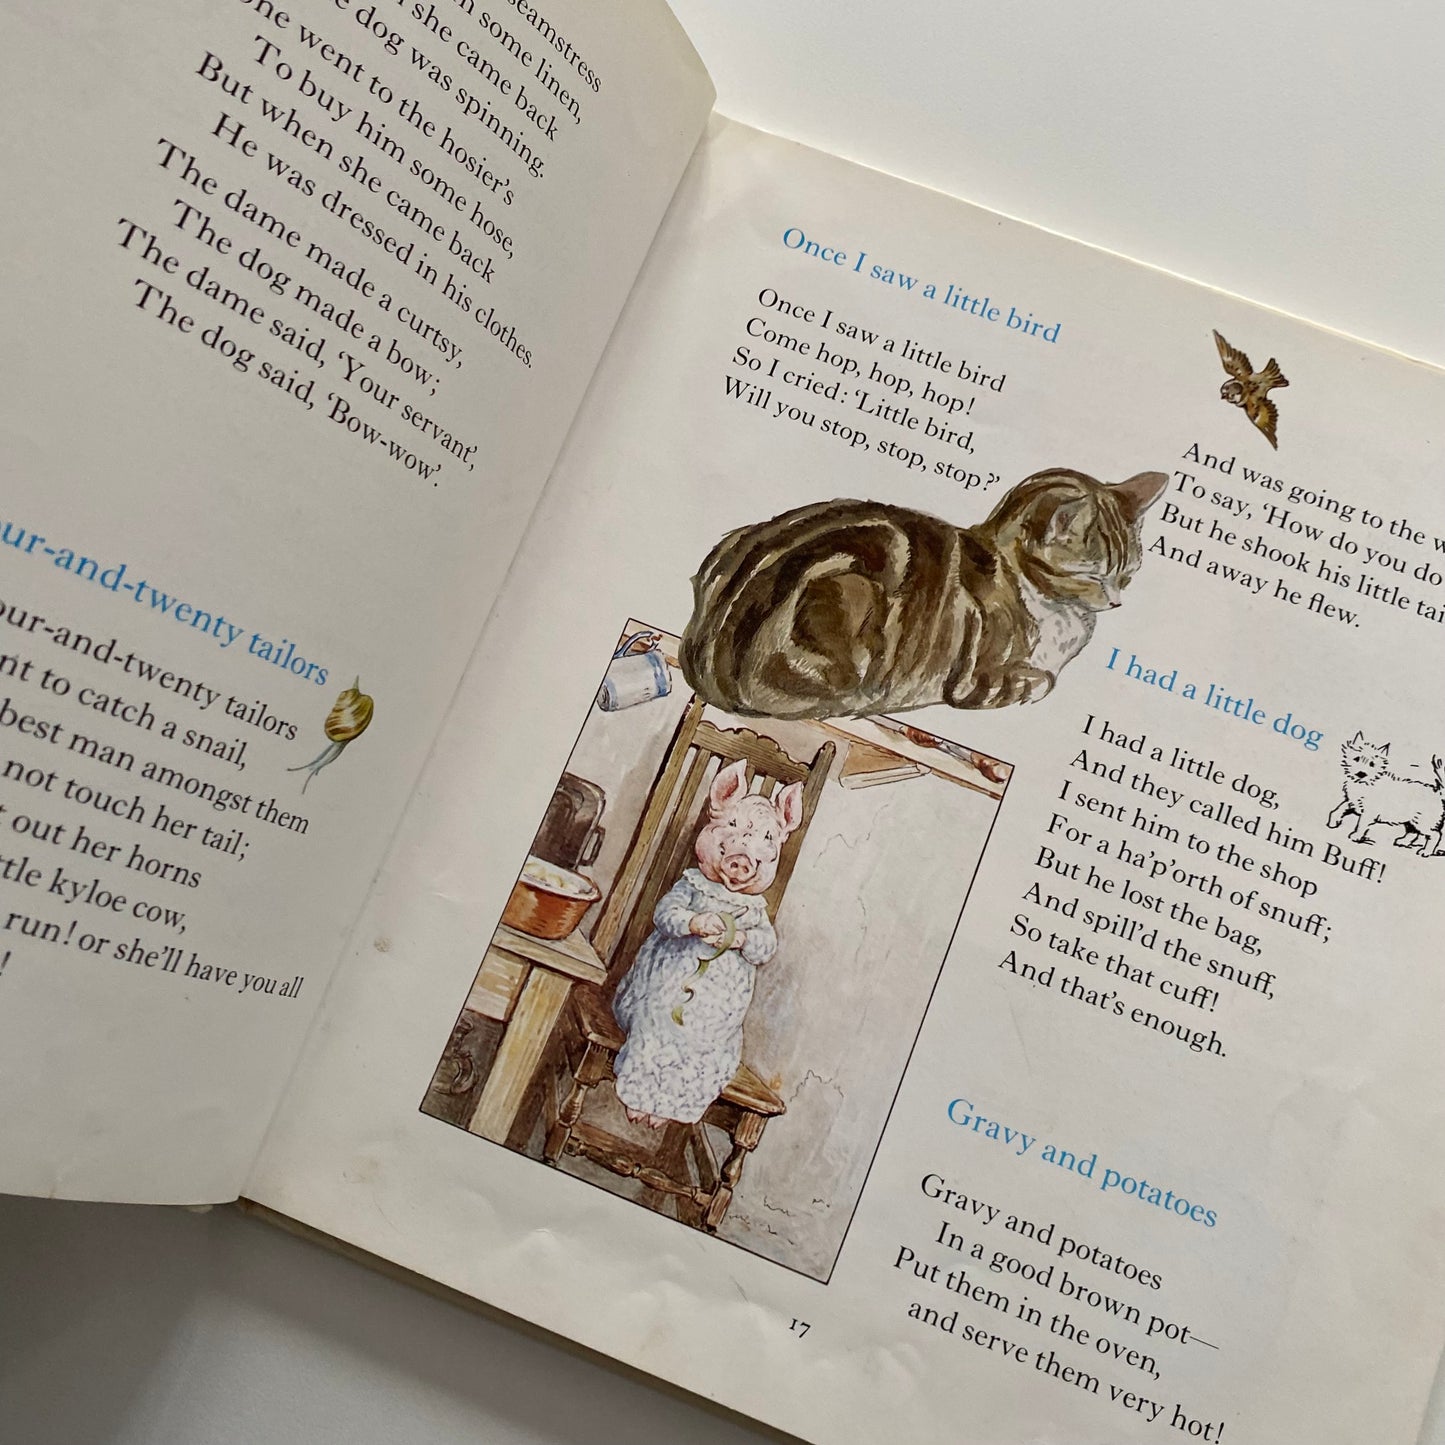 seamstress
some linen,
she came back
dog was spinning.
went to the hosier's
To buy him some hose,
But when she came back
He was dressed in his clothes.
The dame made a curtsy,
The dog made a bow;
The dame said, 'Your servant',
The dog said, 'Bow-wow'.
ur-and-twenty tailors
our-and-twenty tailors
nt to catch a snail,
best man amongst them
not touch her tail;
out her horns
ttle kyloe cow,
run! or she'll have you all
!
Once I saw a little bird
Once I saw a little bird
Come hop, hop, hop!
So I cried: 'Little bird,
Will you stop, stop, stop?'
And was going to the w
To say, 'How do you do
But he shook his little tai
And away he flew.
I had a little dog
I had a little dog,
And they called him Buff!
I sent him to the shop
For a ha'p'orth of snuff;
But he lost the bag,
And spill'd the snuff,
So take that cuff!
And that's enough.
Gravy and potatoes
Gravy and potatoes
In a good brown pot—
Put them in the oven,
and serve them very hot!
17